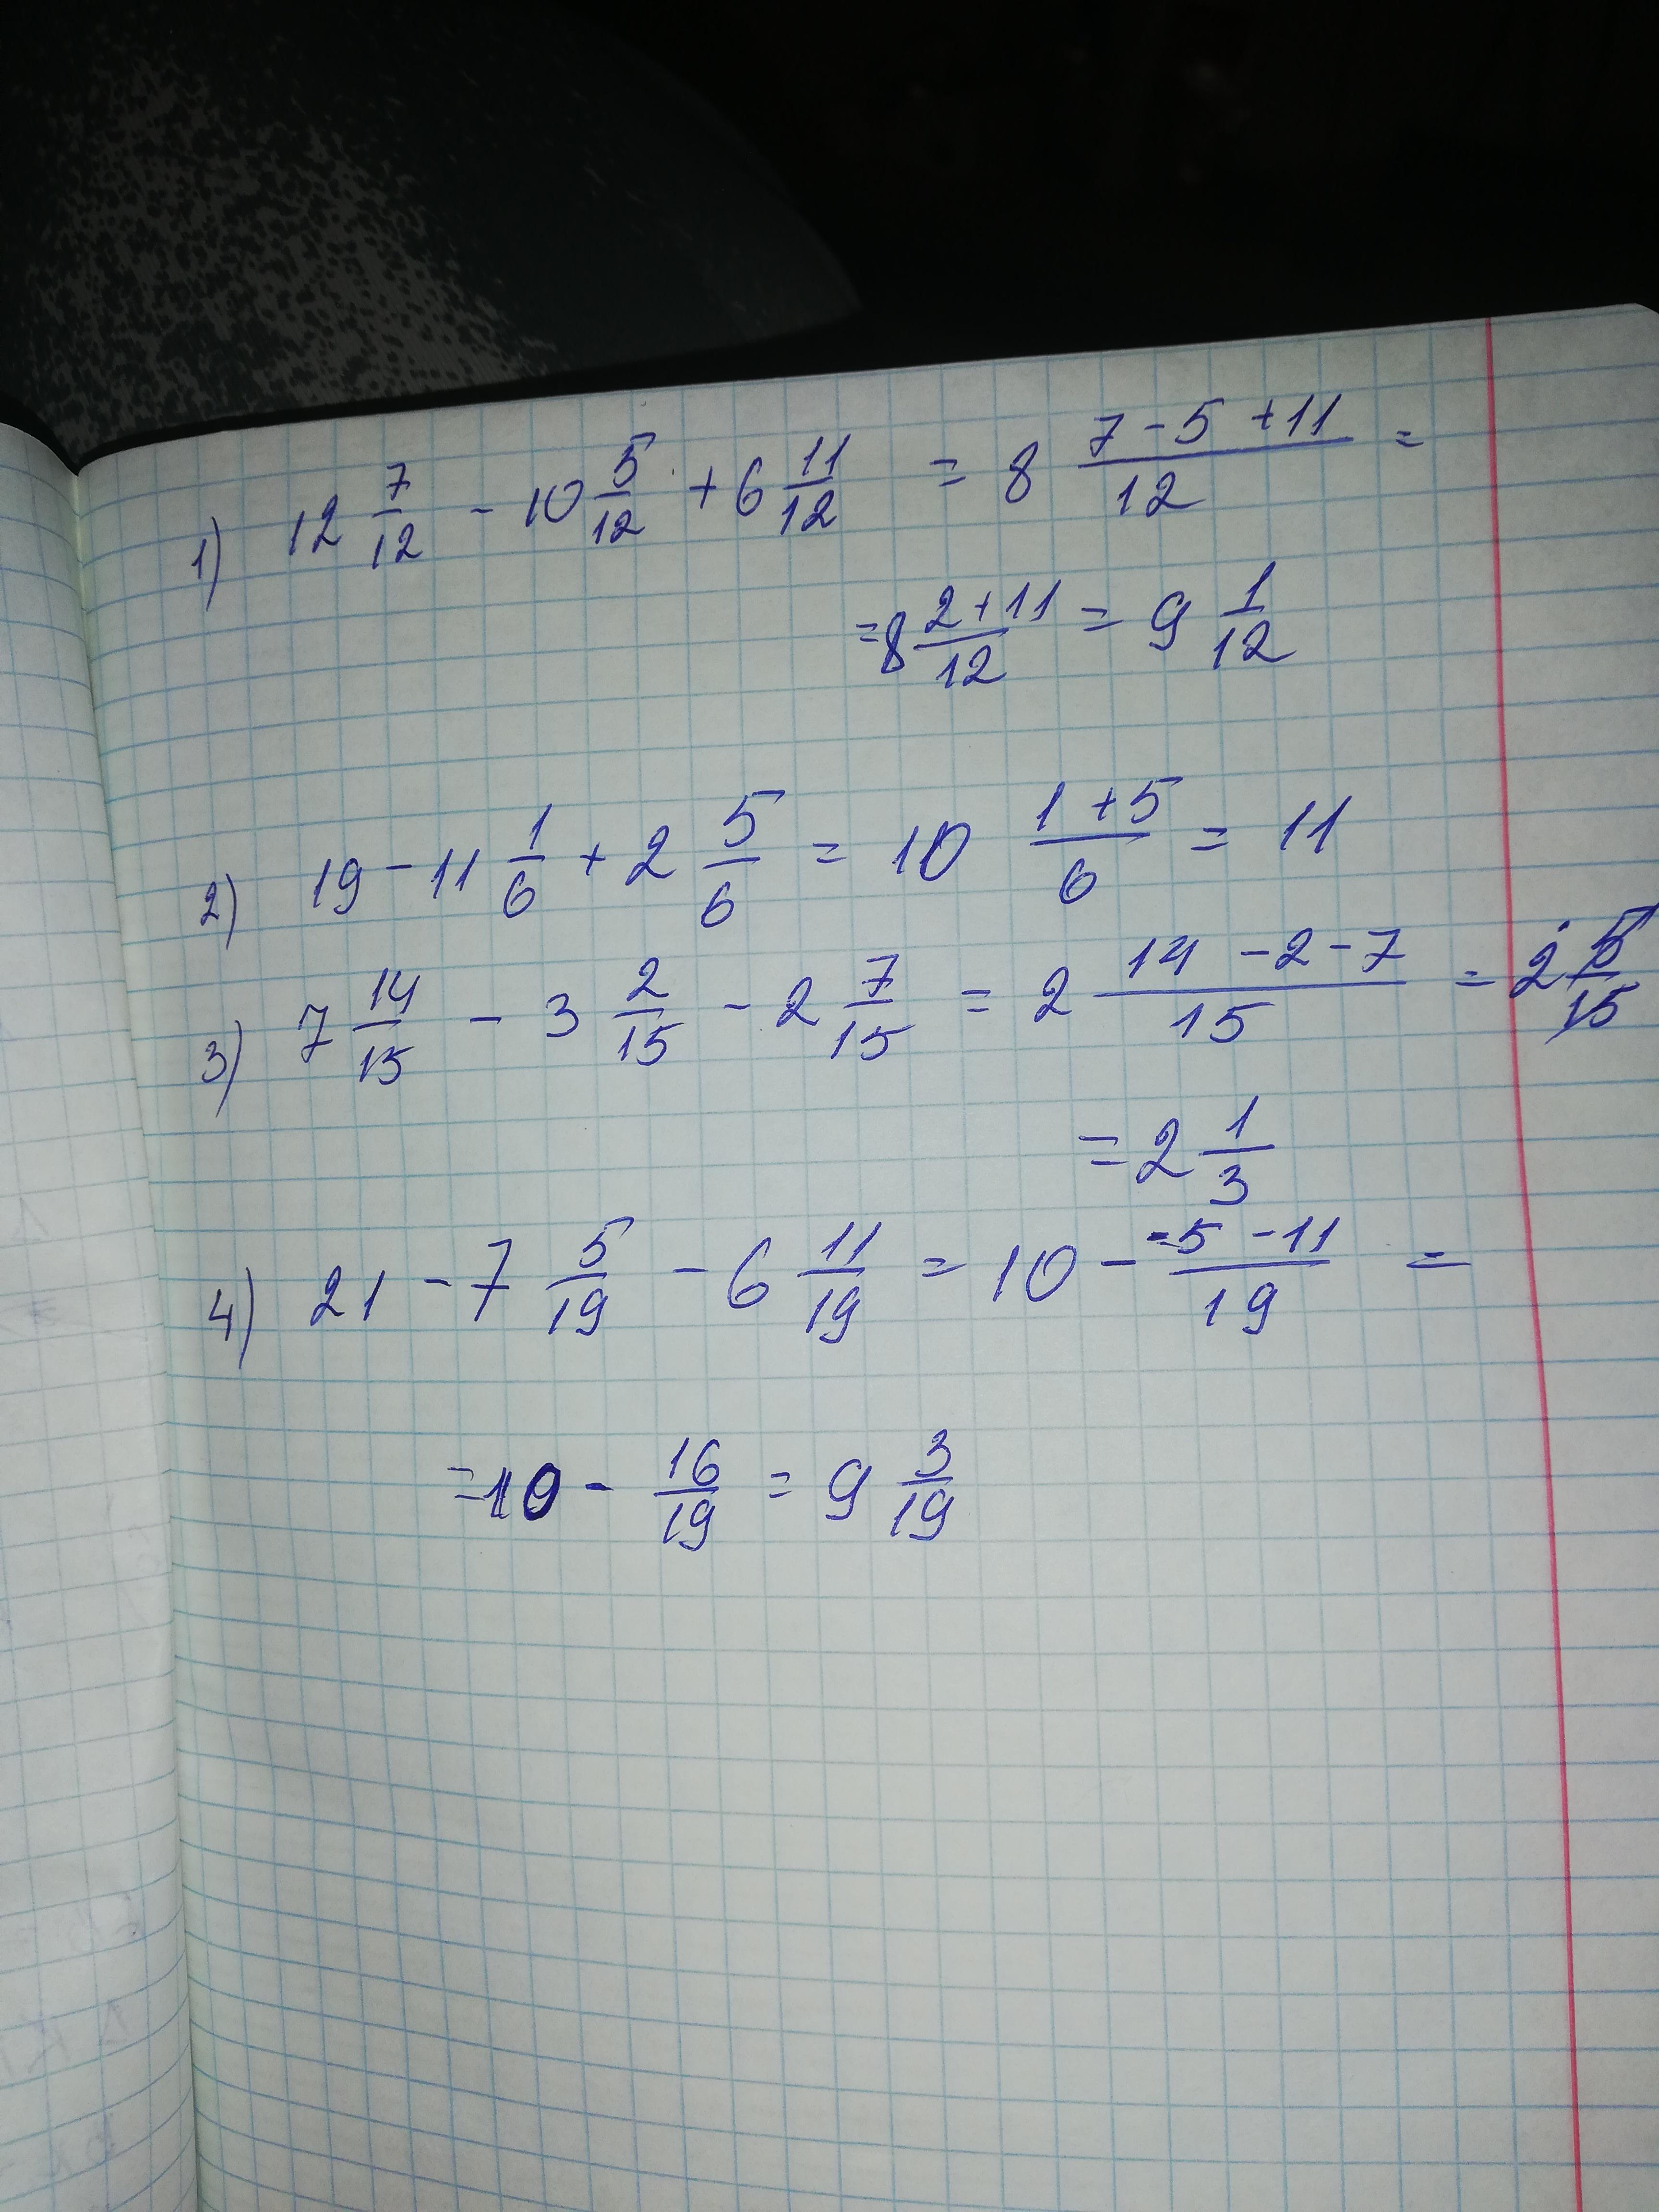 1) 12 7/12 - 10 5/12 + 6 11/12 = 8 (7 - 5 + 11)/12 =
= 8 (2 + 11)/12 = 9 1/12
2) 19 - 11 1/6 + 2 5/6 = 10 (1 + 5)/6 = 11
3) 7 14/15 - 3 2/15 - 2 7/15 = 2 (14 - 2 - 7)/15 = 2 5/15
= 2 1/3
4) 21 - 7 5/19 - 6 11/19 = 10 - (-5 - 11)/19 =
= 10 - 16/19 = 9 3/19